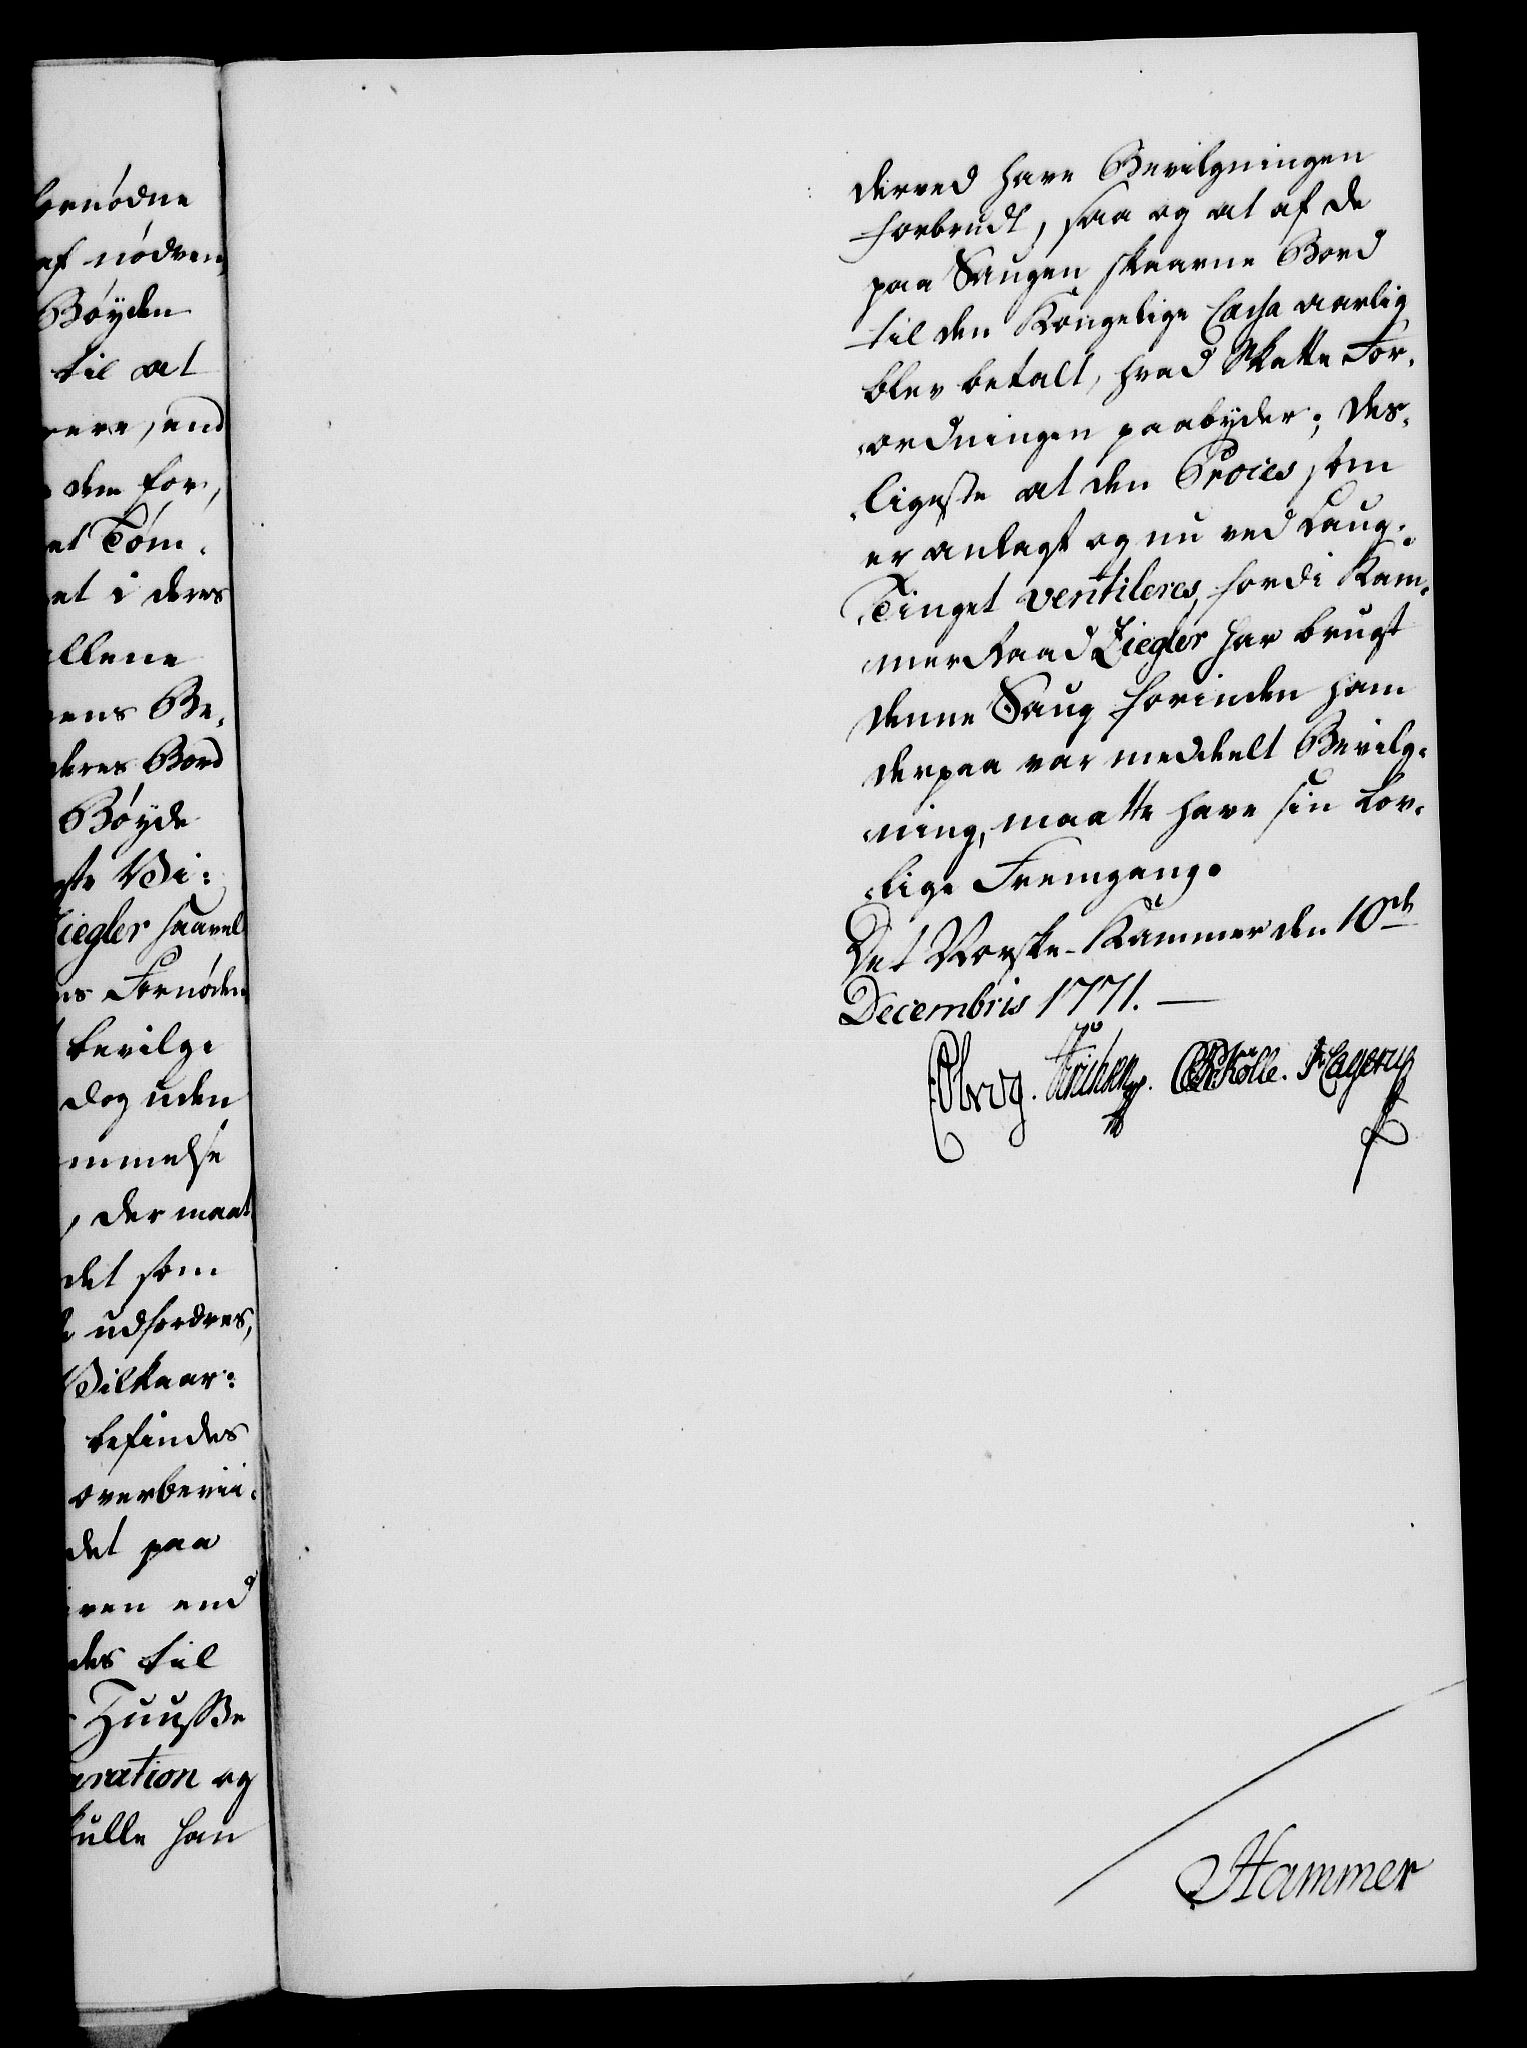 fornødne
af nødven
Bøyden
til at
være, end
dem for,
et Tøm.
et i deres
allene
ens Be.
deres Bord
Bøyde
gste Vi:
Ziegler saavel
ns Fornøden
bevilge
dog uden
mmelse
, der maat
det som
udfordres,
Vilkaar:
befindes
overbevii.
det paa
ren end
des til
Huusse
aration og
skulle han
derved have Bevilgningen
forbrudt, saa og at af de
paa Saugen skaarne Bord
til den Kongelige Cassa aarlig
blev betalt, hvad Skatte For.
ordningen paabyder; des.
ligeste at den Proces som
er anlagt og nu ved Laug.
Tinget ventileres, fordi Kam.
merRaad Ziegler har brugt
denne Saug forinden ham
derpaa var meddeelt Bevilg.
ning, maatte have sin lov.
lige Fremgang.
Det Norske-Kammer den 10de
Decembris 1771. —
Hammer